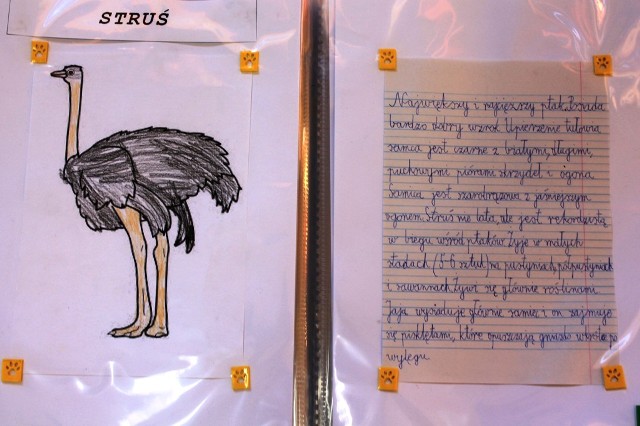 STRUŚ
Największy i najcięższy ptak. Posiada
bardzo dobry wzrok. Upierzenie tułowia
samca jest czarne z białymi, długimi,
puchowymi piórami skrzydeł i ogona.
Samica jest szarobrązowa z jaśniejszym
ogonem. Struś nie lata, ale jest rekordzistą
w biegu wśród ptaków. Żyje w małych
stadach (5-6 sztuk) na pustyniach, półpustyniach
i sawannach. Żywi się głównie roślinami.
Jaja wysiaduje głównie samiec i on zajmuje
się pisklętami, które opuszczają gniazdo wkrótce po
wylęgu.